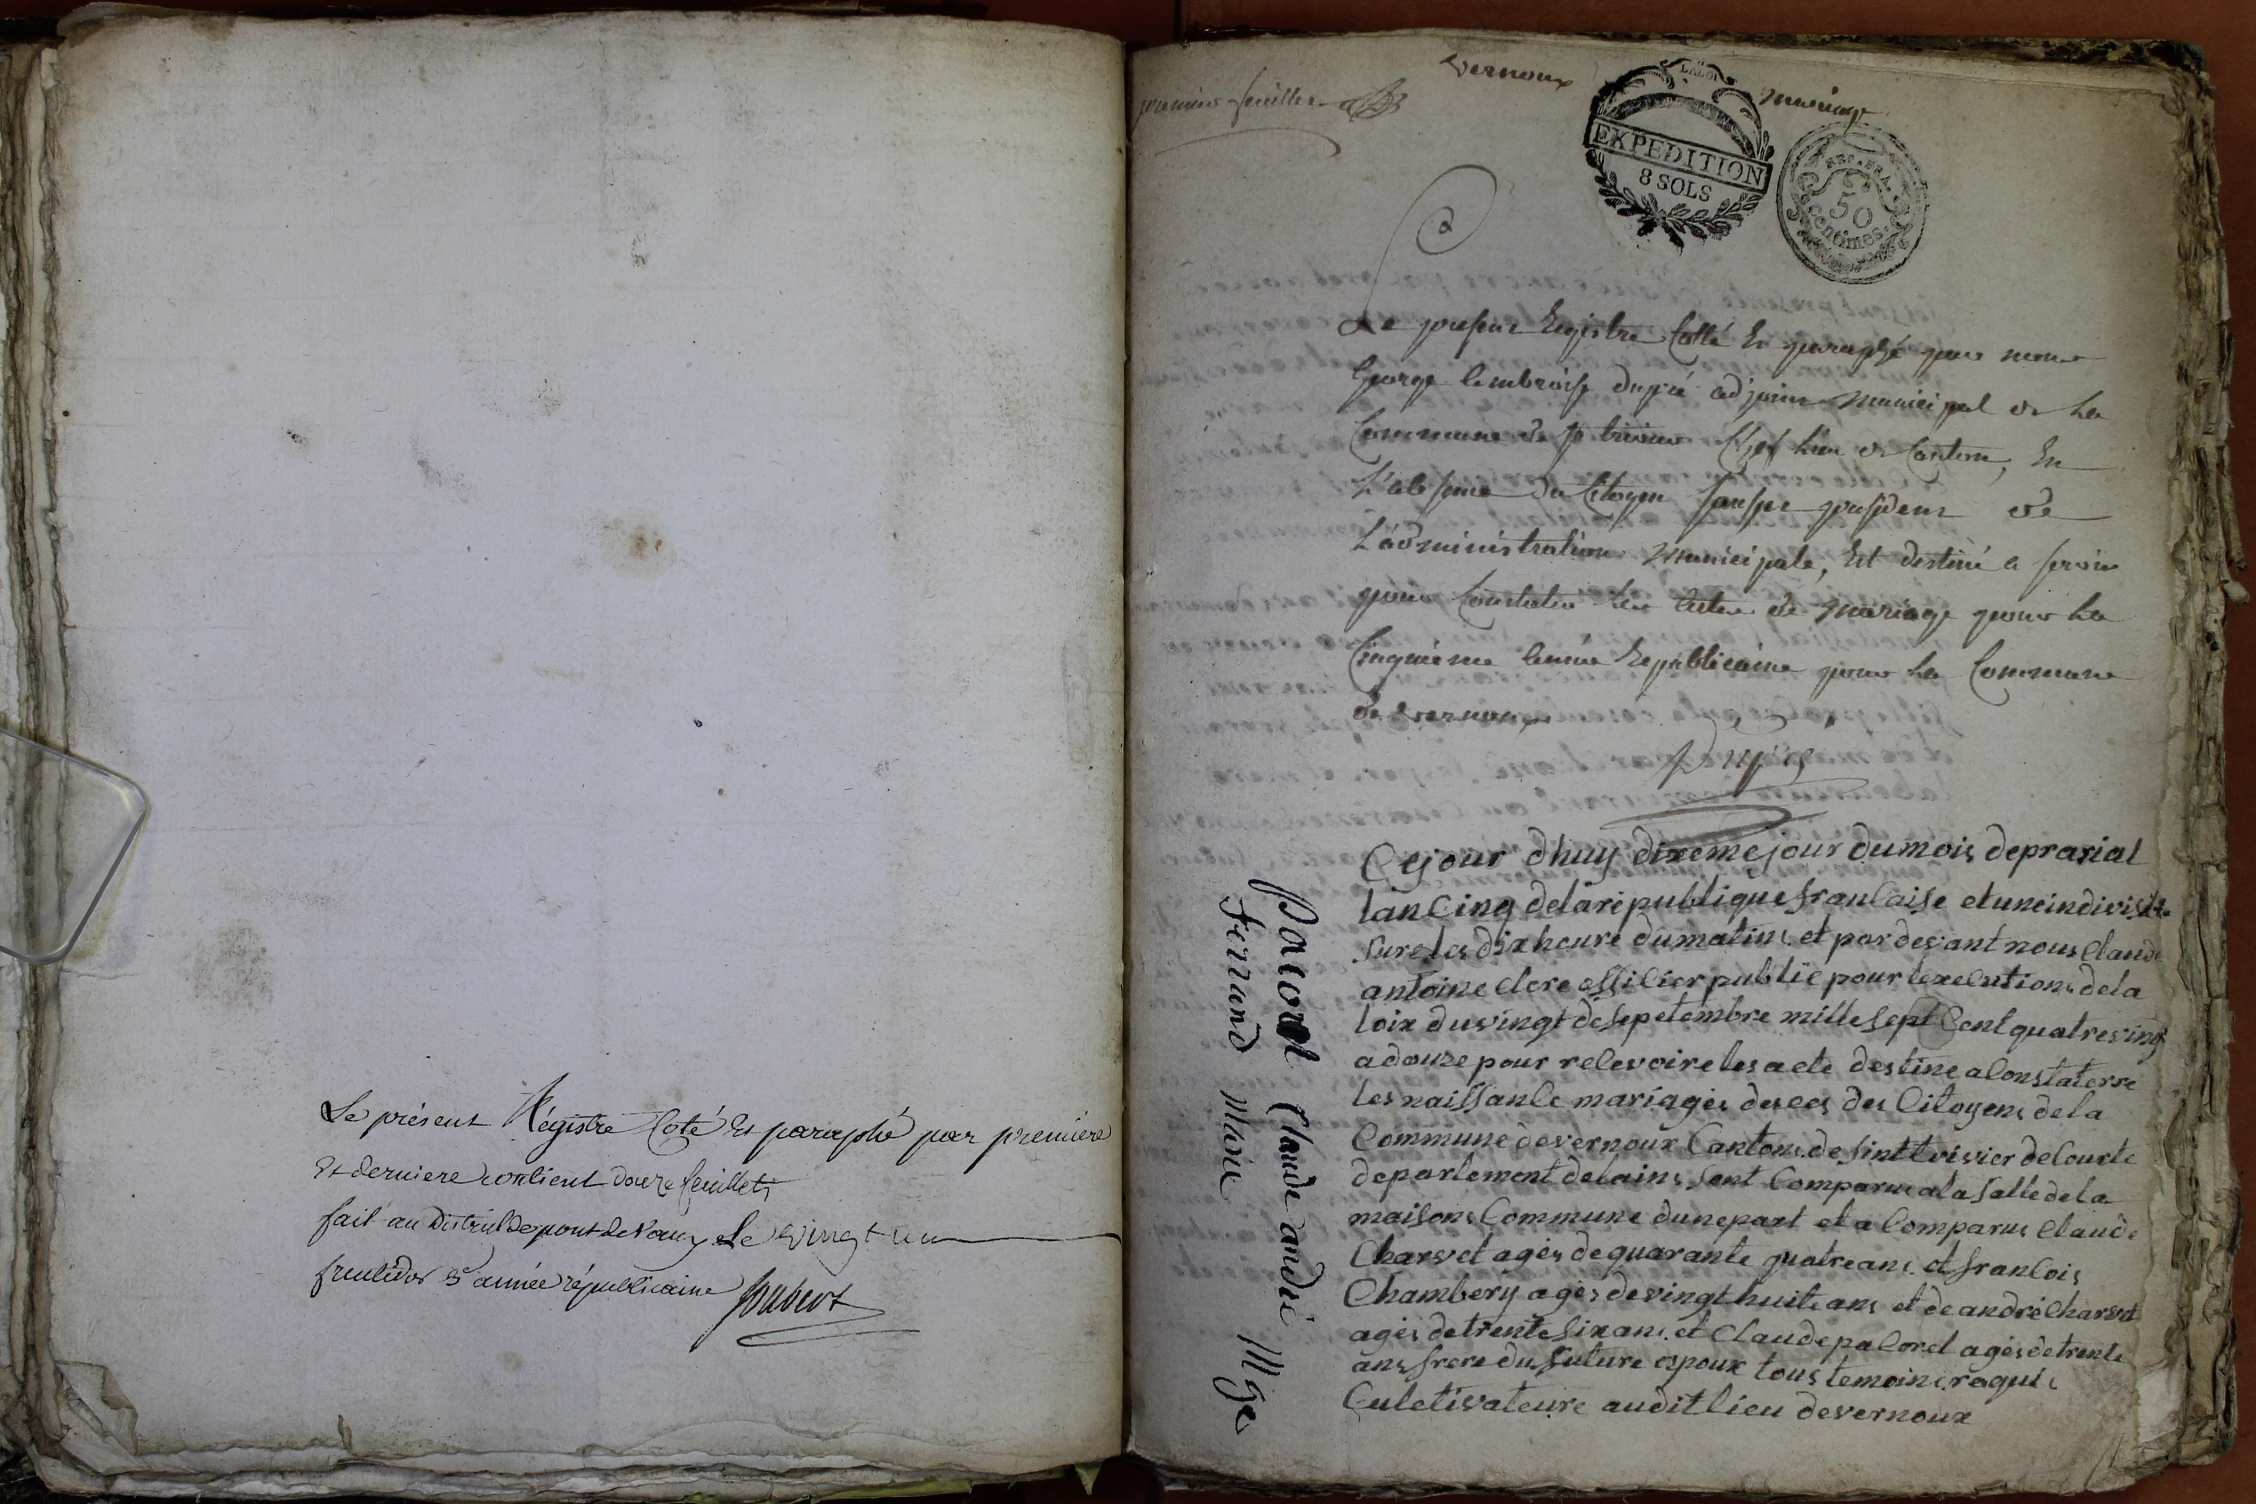 Le présent Régistre Coté Et paraphé par première
Et derniere contient douze feuillets
fait au District de pont de Vaux le vingt un
fructidor 3e année républicaine Joubert
Vernoux
premier feuillet
mariage
LA LOI
EXPEDITION
8 SOLS
REP. FRA.
50
centimes.
Le present Registre Cotté Et paraphé par nous
George Ambroise dupré adjoint municipal de la
Commune de St trivier Chef lieu de Canton, En
L'absence du Citoyen president de
L'administration municipale, Est destiné a servir
pour Constater les actes de mariage pour la
Cinquieme année Republicaine pour la Commune
de vernoux
Dupré
Pacoret Claude andré
Ferrand Marie Mges
Cejour dhuy dixeme jour dumois deprarial
lan Cinq delarepublique francaise et uneindivisible
sure les dix heure dumatins et pardevant nous Claude
antoine Clere officier publie pour lexecutions dela
loix du vingt de sepetembre mille sept Cent quatrevingt
adouze pour relevoire les acte destine aConstaterre
les naissance mariages deces des Citoyens dela
Commune devernoux Cantons de sint trivier deCourte
departement delains sont Comparus ala salle dela
maisons Commune dunepart et a Comparus Claude
Charvet ages dequarante quatre ans et francois
Chambery ages devingt huite ans et de andré Charvet
ages detrente six ans et Claude paCoret ages detrente
ans frere du future epoux tous temoins
Culetivateure audit lieu devernoux